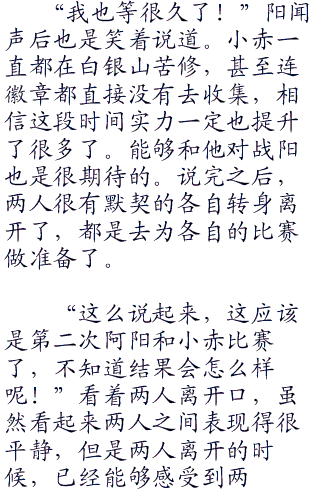 “我也等很久了！” 阳闻
声后也是笑着说道。小赤一
直都在白银山苦修，甚至连
徽章都直接没有去收集，相
信这段时间实力一定也提升
了很多了。能够和他对战阳
也是很期待的。说完之后，
两人很有默契的各自转身离
开了，都是去为各自的比赛
做准备了。
“这么说起来，这应该
是第二次阿阳和小赤比赛
了，不知道结果会怎么样
呢！” 看着两人离开口，虽
然看起来两人之间表现得很
平静，但是两人离开的时
候，已经能够感受到两